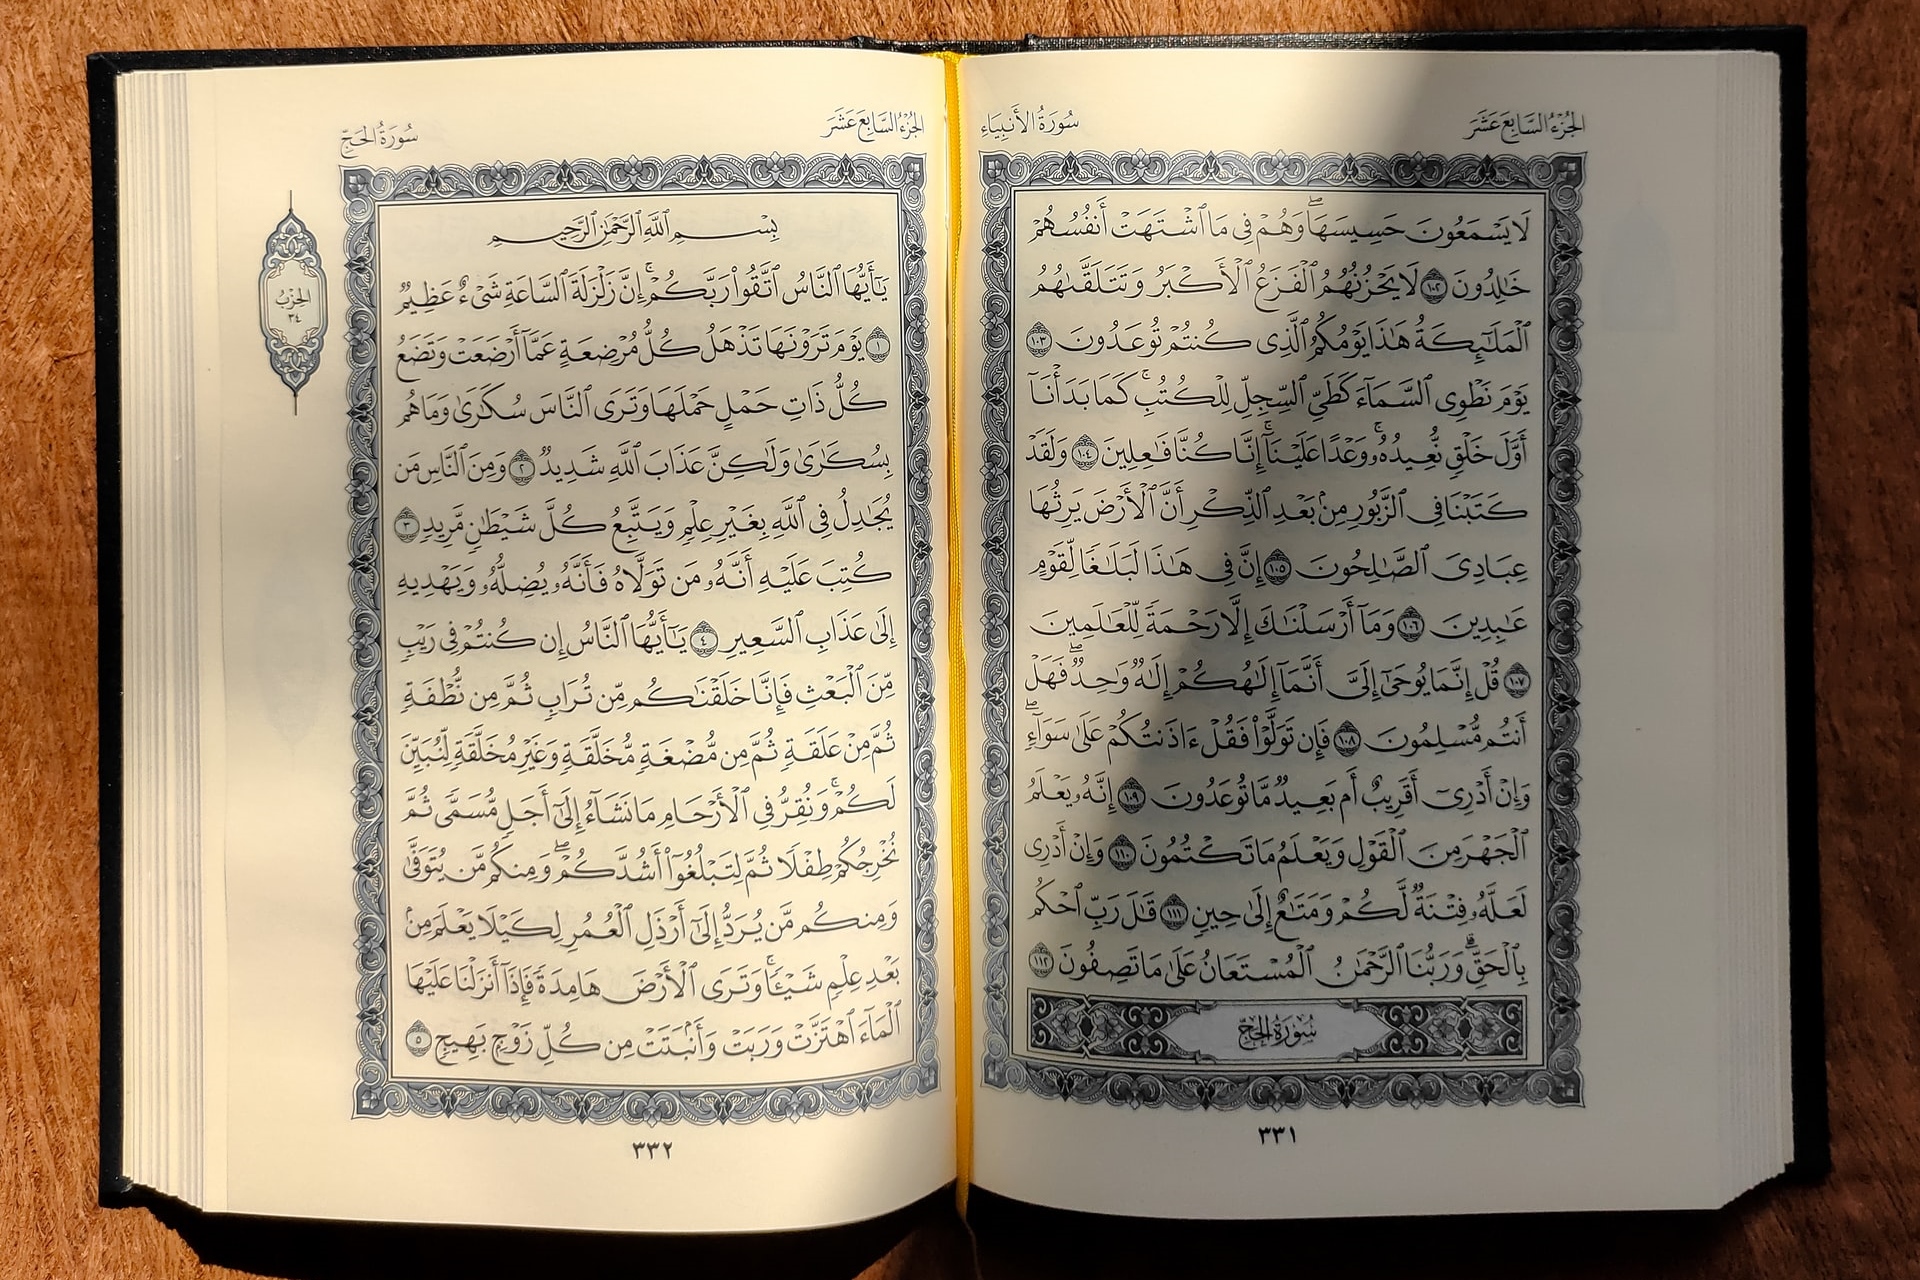 الجُزْءُ السَّابِعَ عَشَرَ
سُورَةُ الأَنبِيَاءِ
لَا يَسْمَعُونَ حَسِيسَهَاۖ وَهُمْ فِى مَا ٱشْتَهَتْ أَنفُسُهُمْ
خَـٰلِدُونَ ١٠٢ لَا يَحْزُنُهُمُ ٱلْفَزَعُ ٱلْأَكْبَرُ وَتَتَلَقَّىٰهُمُ
ٱلْمَلَـٰٓئِكَةُ هَـٰذَا يَوْمُكُمُ ٱلَّذِى كُنتُمْ تُوعَدُونَ ١٠٣
يَوْمَ نَطْوِى ٱلسَّمَآءَ كَطَىِّ ٱلسِّجِلِّ لِلْكُتُبِۚ كَمَا بَدَأْنَآ
أَوَّلَ خَلْقٍ نُّعِيدُهُۥۚ وَعْدًا عَلَيْنَآۚ إِنَّا كُنَّا فَـٰعِلِينَ ١٠٤ وَلَقَدْ
كَتَبْنَا فِى ٱلزَّبُورِ مِنۢ بَعْدِ ٱلذِّكْرِ أَنَّ ٱلْأَرْضَ يَرِثُهَا
عِبَادِىَ ٱلصَّـٰلِحُونَ ١٠٥ إِنَّ فِى هَـٰذَا لَبَلَـٰغًا لِّقَوْمٍ
عَـٰبِدِينَ ١٠٦ وَمَآ أَرْسَلْنَـٰكَ إِلَّا رَحْمَةً لِّلْعَـٰلَمِينَ
١٠٧ قُلْ إِنَّمَا يُوحَىٰٓ إِلَىَّ أَنَّمَآ إِلَـٰهُكُمْ إِلَـٰهٌ وَٰحِدٌۖ فَهَلْ
أَنتُم مُّسْلِمُونَ ١٠٨ فَإِن تَوَلَّوْا۟ فَقُلْ ءَاذَنتُكُمْ عَلَىٰ سَوَآءٍۖ
وَإِنْ أَدْرِىٓ أَقَرِيبٌ أَم بَعِيدٌ مَّا تُوعَدُونَ ١٠٩ إِنَّهُۥ يَعْلَمُ
ٱلْجَهْرَ مِنَ ٱلْقَوْلِ وَيَعْلَمُ مَا تَكْتُمُونَ ١١٠ وَإِنْ أَدْرِى
لَعَلَّهُۥ فِتْنَةٌ لَّكُمْ وَمَتَـٰعٌ إِلَىٰ حِينٍ ١١١ قَـٰلَ رَبِّ ٱحْكُم
بِٱلْحَقِّۗ وَرَبُّنَا ٱلرَّحْمَـٰنُ ٱلْمُسْتَعَانُ عَلَىٰ مَا تَصِفُونَ ١١٢
سُورَةُ الحَجِّ
٣٣١
الجُزْءُ السَّابِعَ عَشَرَ
سُورَةُ الحَجِّ
الحِزْبُ
٣٤
بِسْمِ ٱللَّهِ ٱلرَّحْمَـٰنِ ٱلرَّحِيمِ
يَـٰٓأَيُّهَا ٱلنَّاسُ ٱتَّقُوا۟ رَبَّكُمْۚ إِنَّ زَلْزَلَةَ ٱلسَّاعَةِ شَىْءٌ عَظِيمٌ
١ يَوْمَ تَرَوْنَهَا تَذْهَلُ كُلُّ مُرْضِعَةٍ عَمَّآ أَرْضَعَتْ وَتَضَعُ
كُلُّ ذَاتِ حَمْلٍ حَمْلَهَا وَتَرَى ٱلنَّاسَ سُكَـٰرَىٰ وَمَا هُم
بِسُكَـٰرَىٰ وَلَـٰكِنَّ عَذَابَ ٱللَّهِ شَدِيدٌ ٢ وَمِنَ ٱلنَّاسِ مَن
يُجَـٰدِلُ فِى ٱللَّهِ بِغَيْرِ عِلْمٍ وَيَتَّبِعُ كُلَّ شَيْطَـٰنٍ مَّرِيدٍ ٣
كُتِبَ عَلَيْهِ أَنَّهُۥ مَن تَوَلَّاهُ فَأَنَّهُۥ يُضِلُّهُۥ وَيَهْدِيهِ
إِلَىٰ عَذَابِ ٱلسَّعِيرِ ٤ يَـٰٓأَيُّهَا ٱلنَّاسُ إِن كُنتُمْ فِى رَيْبٍ
مِّنَ ٱلْبَعْثِ فَإِنَّا خَلَقْنَـٰكُم مِّن تُرَابٍ ثُمَّ مِن نُّطْفَةٍ
ثُمَّ مِنْ عَلَقَةٍ ثُمَّ مِن مُّضْغَةٍ مُّخَلَّقَةٍ وَغَيْرِ مُخَلَّقَةٍ لِّنُبَيِّنَ
لَكُمْۚ وَنُقِرُّ فِى ٱلْأَرْحَامِ مَا نَشَآءُ إِلَىٰٓ أَجَلٍ مُّسَمًّى ثُمَّ
نُخْرِجُكُمْ طِفْلًا ثُمَّ لِتَبْلُغُوٓا۟ أَشُدَّكُمْۖ وَمِنكُم مَّن يُتَوَفَّىٰ
وَمِنكُم مَّن يُرَدُّ إِلَىٰٓ أَرْذَلِ ٱلْعُمُرِ لِكَيْلَا يَعْلَمَ مِنۢ
بَعْدِ عِلْمٍ شَيْـًٔاۚ وَتَرَى ٱلْأَرْضَ هَامِدَةً فَإِذَآ أَنزَلْنَا عَلَيْهَا
ٱلْمَآءَ ٱهْتَزَّتْ وَرَبَتْ وَأَنۢبَتَتْ مِن كُلِّ زَوْجٍۭ بَهِيجٍ ٥
٣٣٢